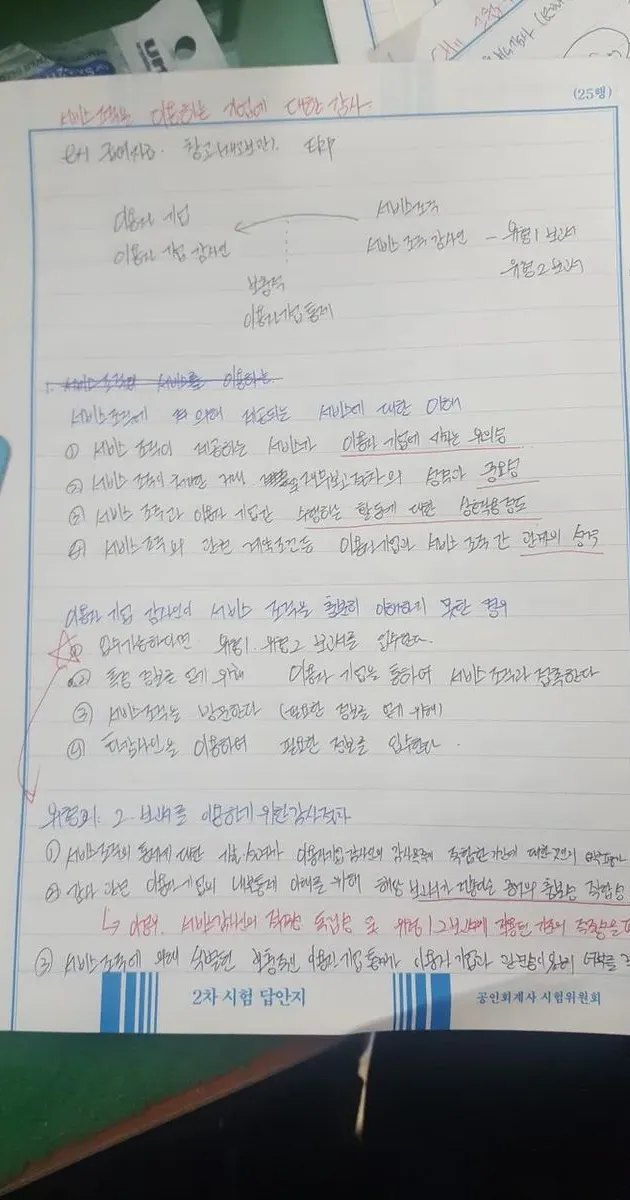 (25행)
서비스조직을 이용하는 기업에 대한 감사
ex) 급여처리. 창고(재고보관). ERP
이용자 기업
서비스조직
이용자 기업 감사인
서비스 조직 감사인 - 유형1 보고서
유형2 보고서
보충적
이용자기업통제
1. 서비스조직의 서비스를 이용하는
서비스조직에 의해 제공되는 서비스에 대한 이해
① 서비스 조직이 제공하는 서비스가 이용자 기업에 유의성
② 서비스 조직이 거래 재무보고절차의 성격과 중요성
③ 서비스 조직과 이용자 기업간 수행하는 활동에 대한 상호작용정도
④ 서비스 조직과 관련 계약조건등 이용자기업과 서비스 조직간 관계의 성격
이용자 기업 감사인이 서비스 조직을 충분히 이해하지 못한 경우
① 입수가능하다면 유형1. 유형2 보고서를 입수한다.
② 특정 정보를 얻기 위해 이용자 기업을 통하여 서비스조직과 접촉한다
③ 서비스조직을 방문한다 (필요한 정보를 얻기 위해)
④ 타감사인을 이용하여 필요한 정보를 입수한다.
유형1. 2. 보고서를 이용하기 위한 감사절차
① 서비스조직의 통제에 대한 이용자기업 감사인의 감사목적에 적합한 기간에 대한 것인지
② 감사 관련 이용자기업의 내부통제 이해를 위해 해당 보고서가 제공하는 증거의 충분성 적합성
↳ 서비스감사인의 적격성 독립성 및 유형 1,2 보고서에 적용된 기준의 적절성을
③ 서비스조직에 의해 식별된 보충적인 이용자기업통제가 이용자기업과 관련성이 있는지
2차 시험 답안지
공인회계사 시험위원회